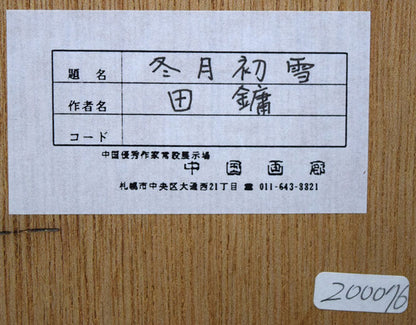 題名 冬月初雪
作者名 田鏞
コード
中国優秀作家常設展示場
中国画廊
札幌市中央区大通西21丁目 ☎ 011-643-8821
200076